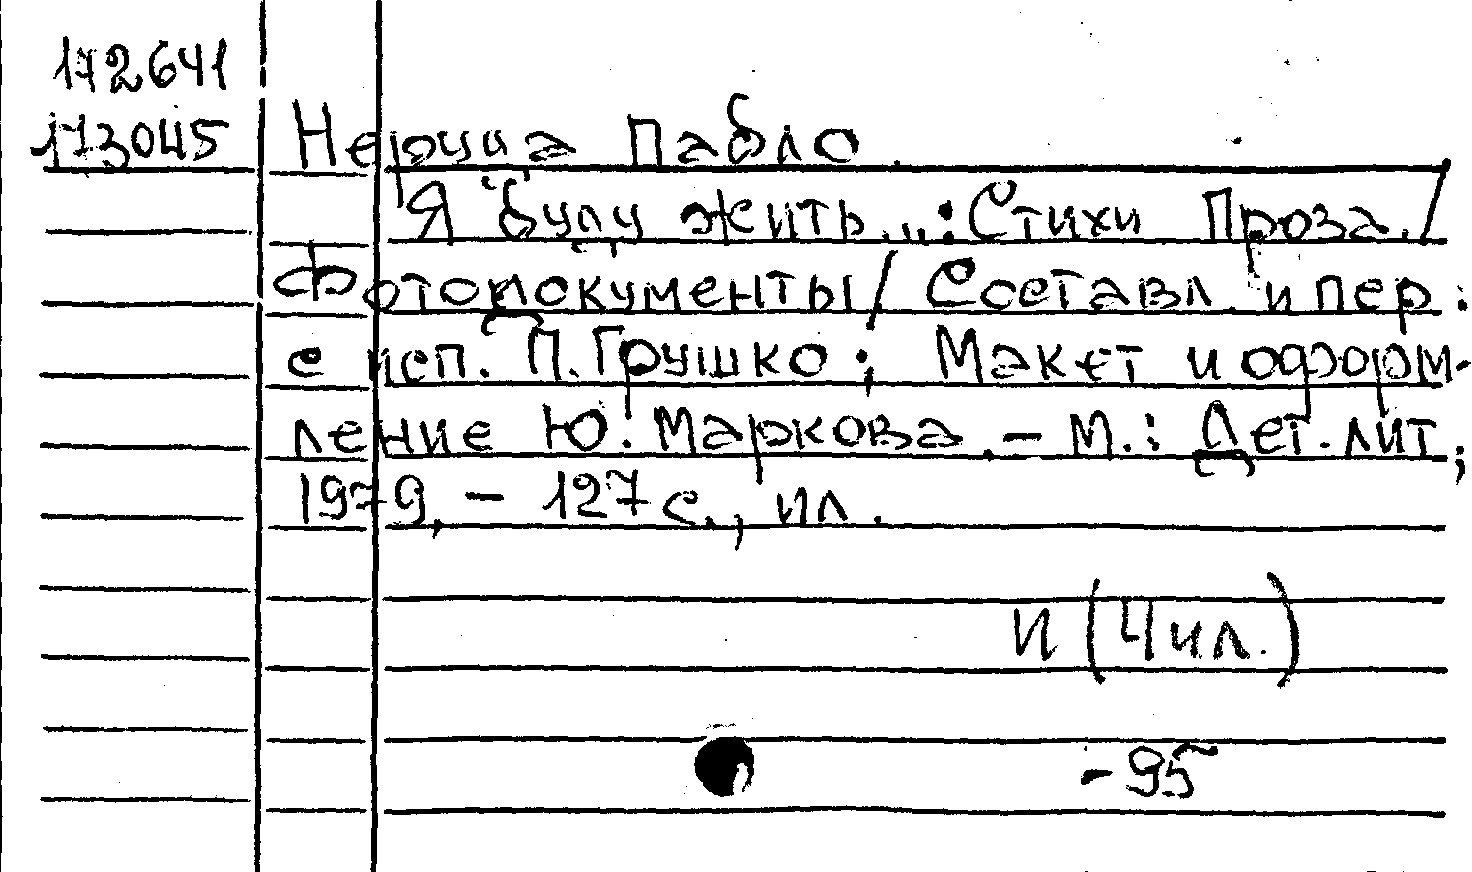 172641
173045 Неруда Пабло.
Я буду жить...: Стихи Проза./
Фотодокументы/ Составл. и пер.
с исп. П.Грушко; Макет и оформ-
ление Ю. Маркова. - М.: Дет. лит,
1979, - 127 с., ил.
И (Ч ил.)
- 95